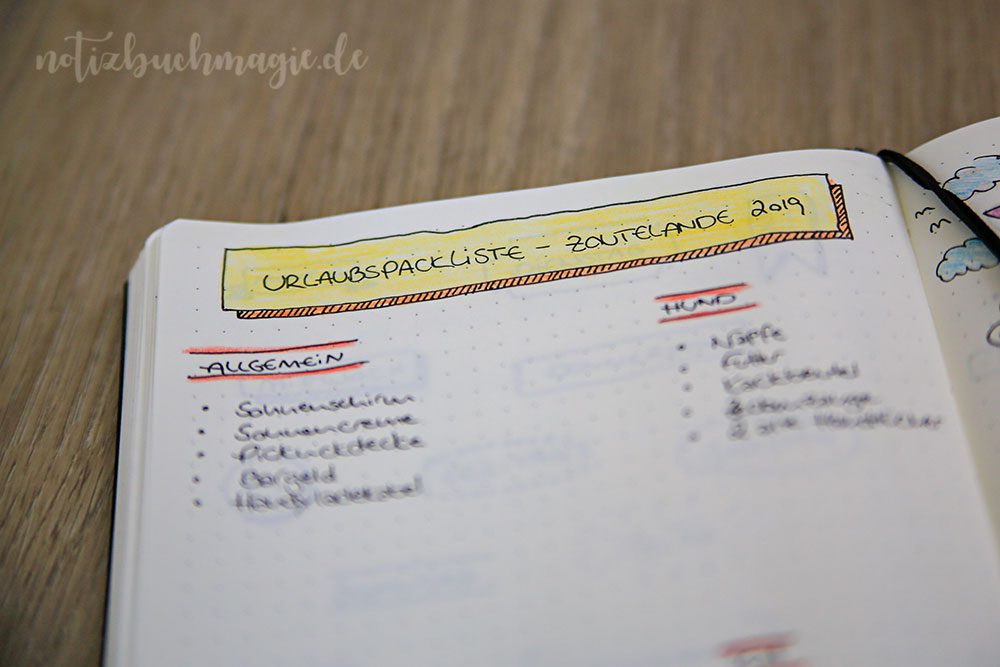 notizbuchmagie.de
URLAUBSPACKLISTE - ZOUTELANDE 2019
ALLGEMEIN
• Sonnenschirm
• Sonnencreme
• Picknickdecke
• Bargeld
• Handyladekabel
HUND
• Näpfe
• Futter
• Kackbeutel
•
• 2 alte Handtücher